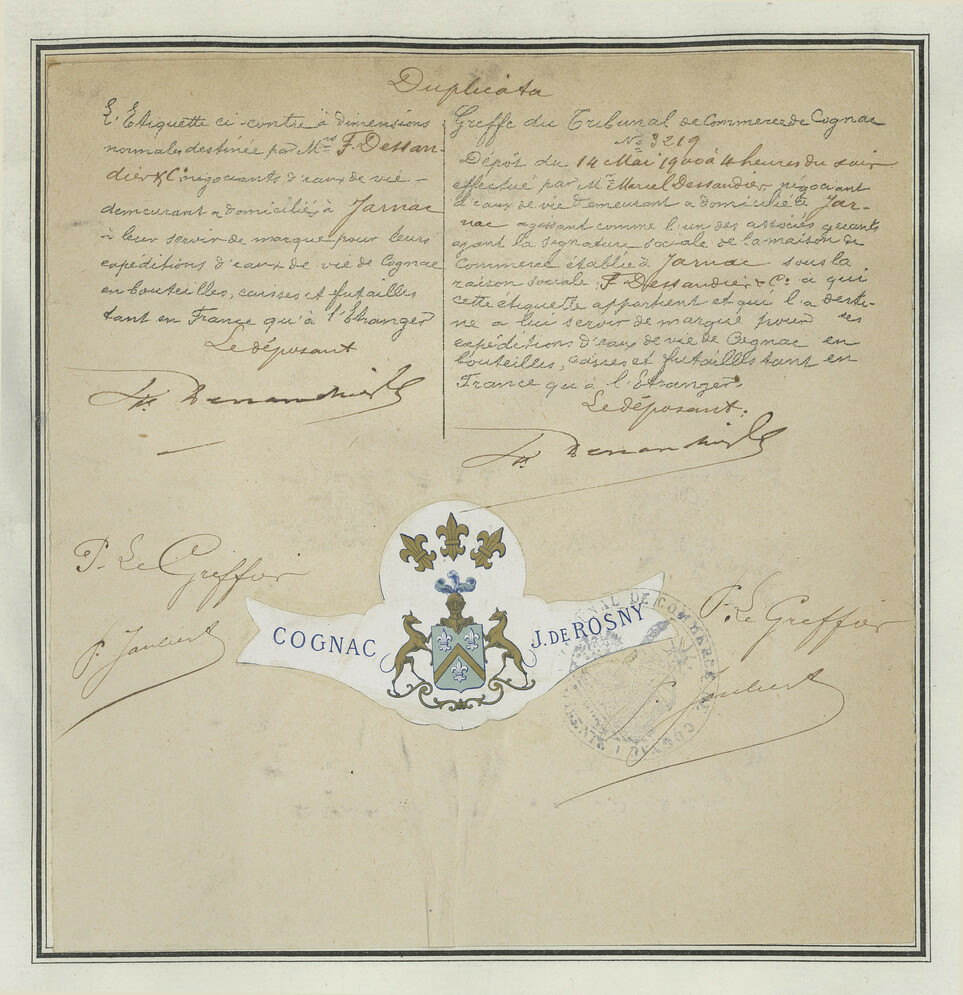 Duplicata
L'Etiquette ci-contre à dimensions
normales destinée par Mrs F. Dessan-
dier & Cie négociants d'eaux de vie –
demeurant & domiciliés à Jarnac
à leur servir de marque pour leurs
expéditions d'eaux de vie de Cognac
en bouteilles, caisses et futailles
tant en France qu'à l'Etranger
Le déposant
Greffe du Tribunal de Commerce de Cognac
No 3219
Dépôt du 14 Mai 1900 à 4 heures du soir
effectué par Mr Marcel Dessandier, négociant
d'eaux de vie demeurant & domicilié à Jar-
nac agissant comme l'un des associés gérants
ayant la signature sociale de la maison de
Commerce établie à Jarnac sous la
raison sociale F. Dessandier & Cie à qui
cette étiquette appartient et qui l'a desti-
né à lui servir de marque pour ses
expéditions d'eaux de vie de Cognac en
bouteilles, caisses et futailles tant en
France qu'à l'Etranger.
Le déposant.
P. Le Greffier
P. Le Greffier
COGNAC J. DE ROSNY
TRIBUNAL DE COMMERCE DE COGNAC